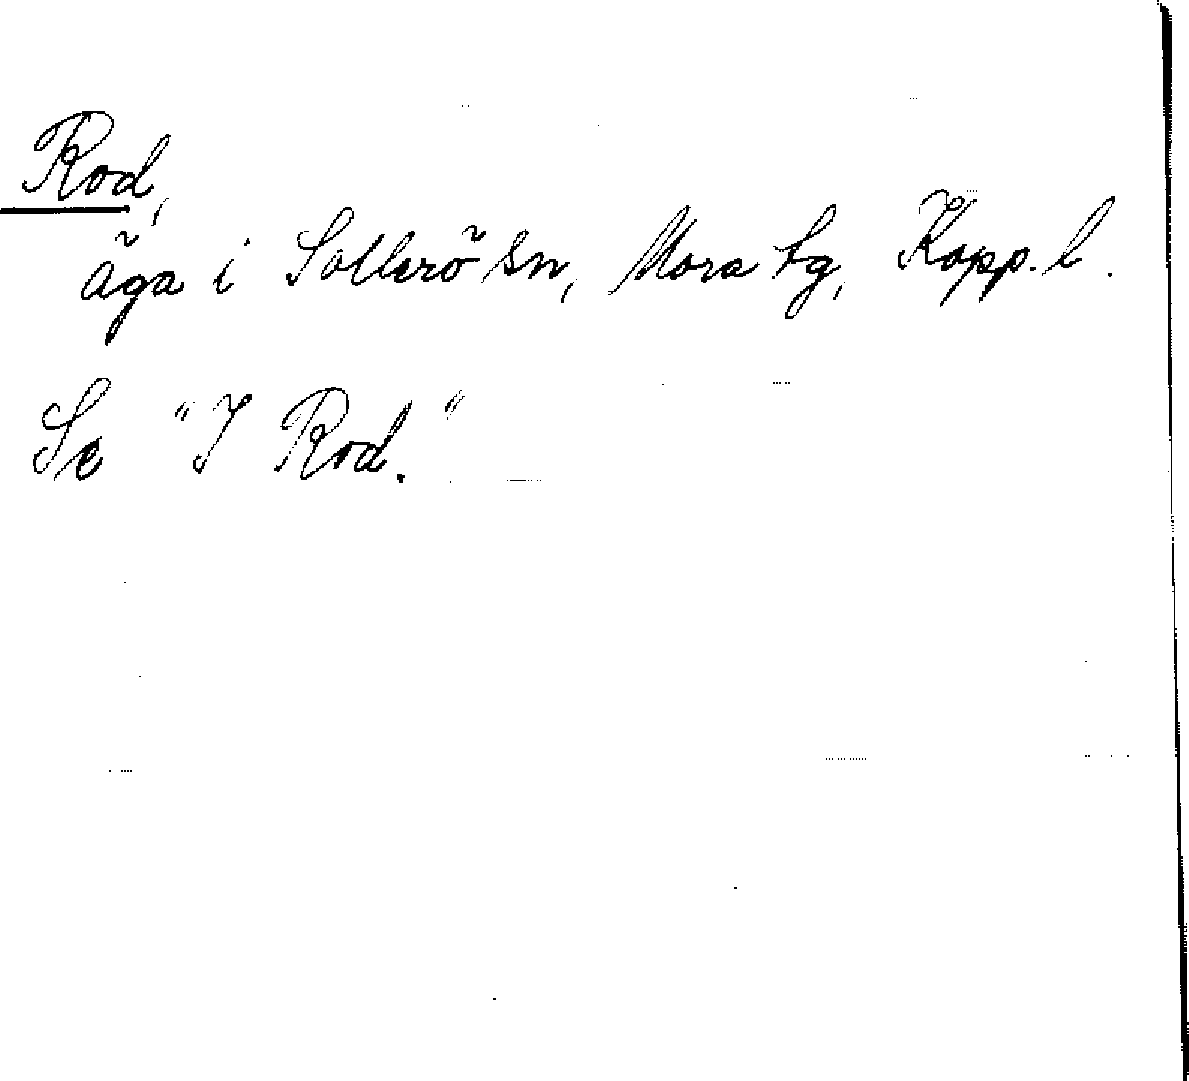 Rod,
äga i Sollerö sn, Mora tg, Kopp. l.
Se "I Rod."